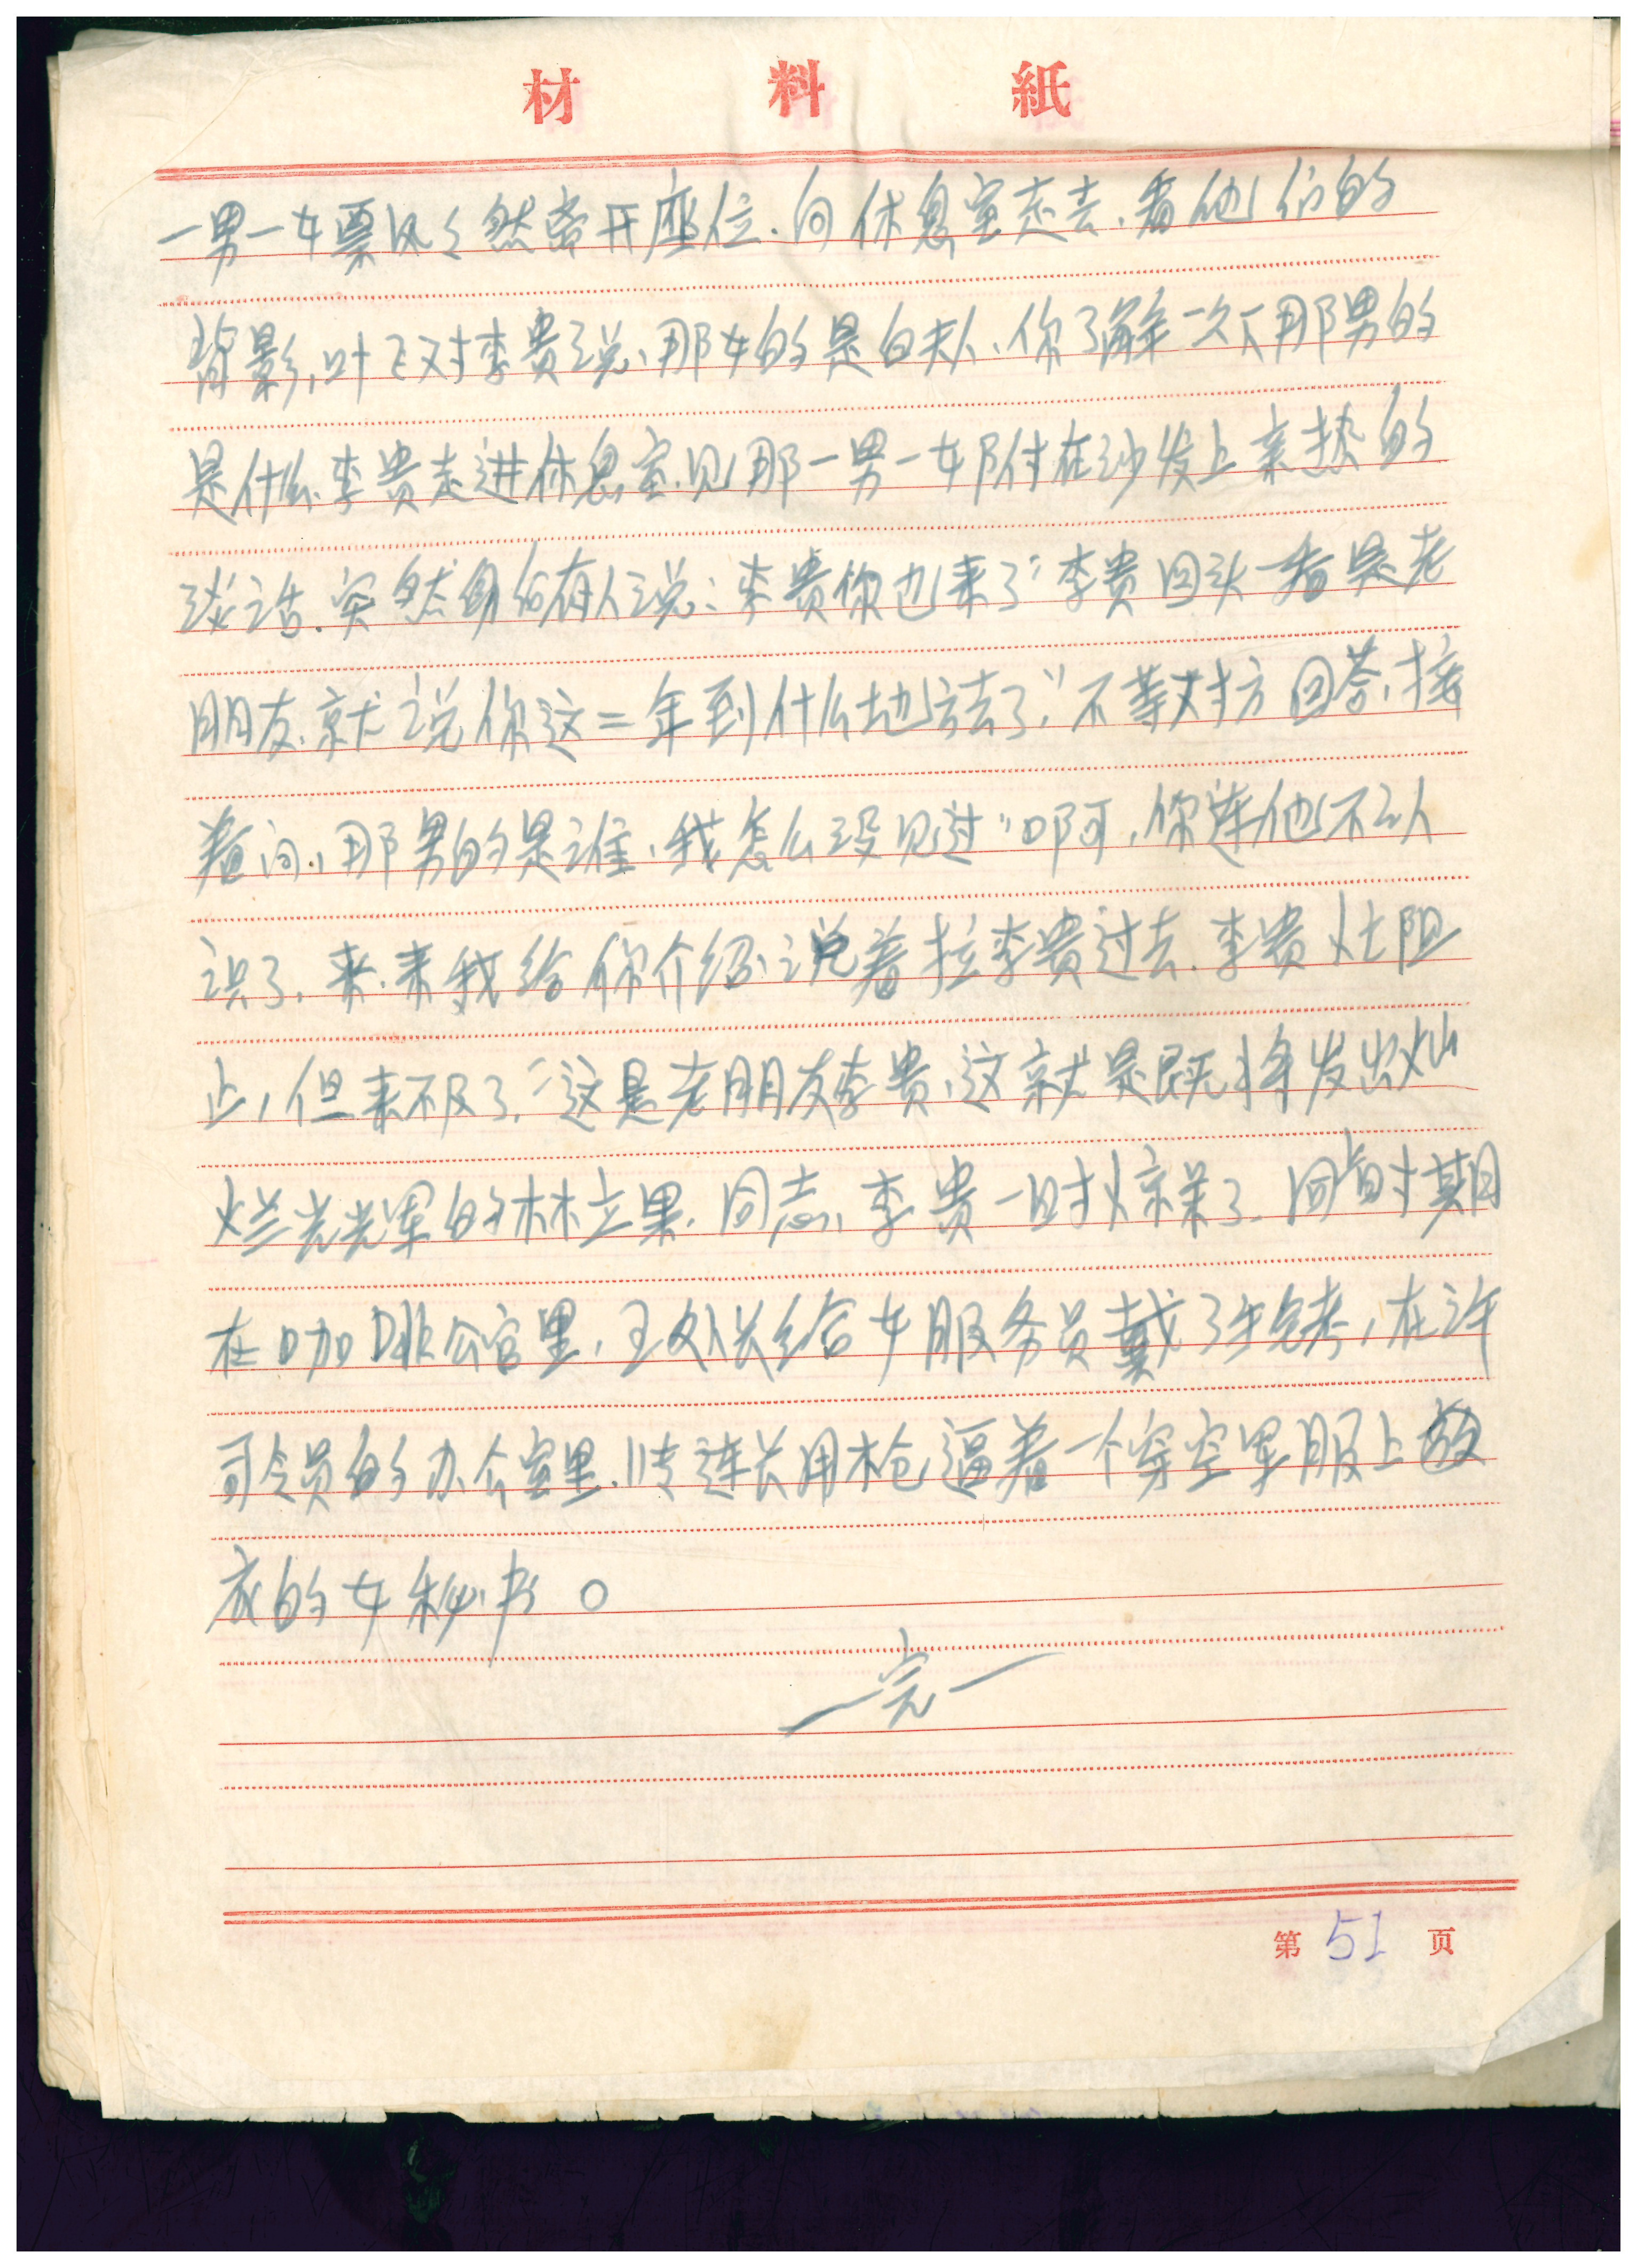 材料紙
一男一女票风々然离开座位.向休息室走去.看他们的
背影,叶飞对李贵说,那女的是白夫人、你了解一次下那男的
是什么.李贵走进休息室.见那一男一女附在沙发上亲热的
谈话.突然身后有人说:李贵你也来了"李贵回头一看是老
朋友.就说你这二年到什么地方去了"不等对方回答,接
着问,那男的是谁,我怎么没见过"啊,你连他不认
识了.来.来我给你介绍.说着拉李贵过去.李贵忙阻
止,但来不及了."这是老朋友李贵,这就是既将发出灿
烂光光军的林立果.同志,李贵一时惊呆了.同时期
在咖啡公官里,王处长给女服务员戴了手铐,在许
司令员的办公室里.传连长用枪逼着一个穿空军服上
衣的女秘书。
—完—
第51页